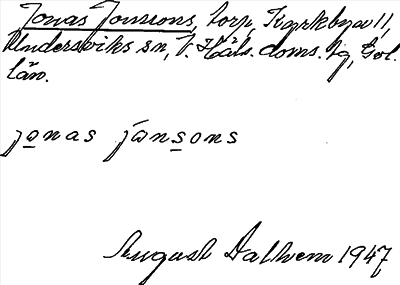 Jonas Jonsons, torp, Kyrkbyn 11,
Undersviks sn, V. Häls. doms. tg, Gvl.
län.
jonas jonsons
August Dalhem 1947